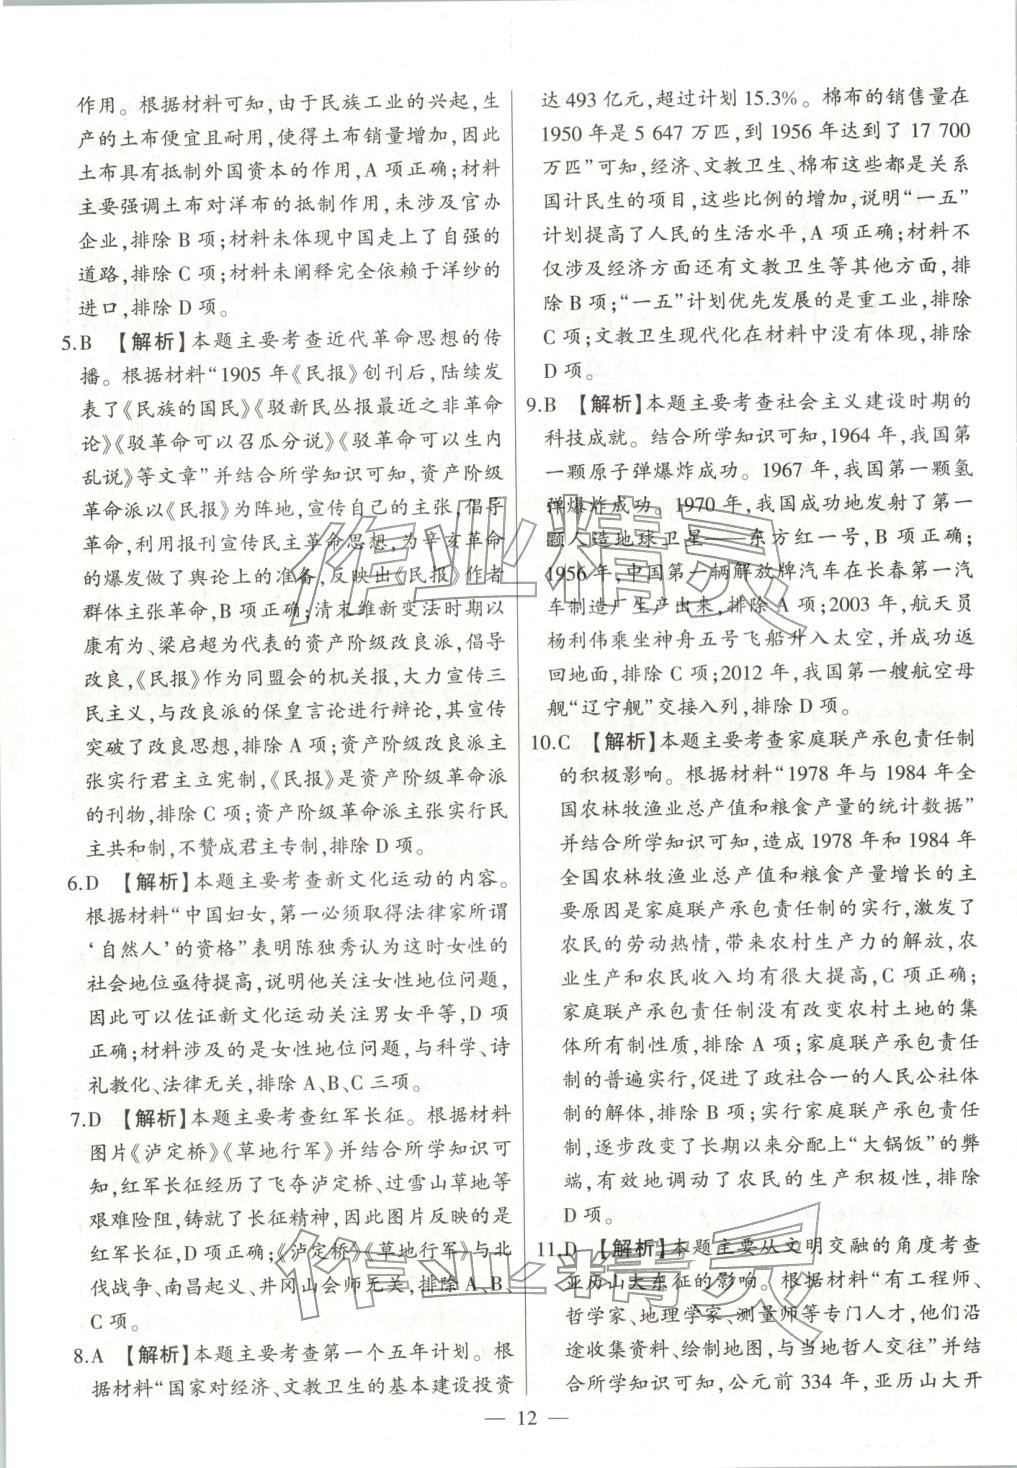 作用。根据材料可知,由于民族工业的兴起,生
产的土布便宜且耐用,使得土布销量增加,因此
土布具有抵制外国资本的作用,A 项正确;材料
主要强调土布对洋布的抵制作用,未涉及官办
企业,排除 B 项;材料未体现中国走上了自强的
道路,排除 C 项;材料未阐释完全依赖于洋纱的
进口,排除 D 项。
5.B 【解析】本题主要考查近代革命思想的传
播。根据材料“1905 年《民报》创刊后,陆续发
表了《民族的国民》《驳新民丛报最近之非革命
论》《驳革命可以召瓜分说》《驳革命可以生内
乱说》等文章”并结合所学知识可知,资产阶级
革命派以《民报》为阵地,宣传自己的主张,倡导
革命,利用报刊宣传民主革命思想,为辛亥革命
的爆发做了舆论上的准备,反映出《民报》作者
群体主张革命,B 项正确;清末维新变法时期以
康有为、梁启超为代表的资产阶级改良派,倡导
改良,《民报》作为同盟会的机关报,大力宣传三
民主义,与改良派的保皇言论进行辩论,其宣传
突破了改良思想,排除 A 项;资产阶级改良派主
张实行君主立宪制,《民报》是资产阶级革命派
的刊物,排除 C 项;资产阶级革命派主张实行民
主共和制,不赞成君主专制,排除 D 项。
6.D 【解析】本题主要考查新文化运动的内容。
根据材料“中国妇女,第一必须取得法律家所谓
‘自然人’的资格”表明陈独秀认为这时女性的
社会地位亟待提高,说明他关注女性地位问题,
因此可以佐证新文化运动关注男女平等,D 项
正确;材料涉及的是女性地位问题,与科学、诗
礼教化、法律无关,排除 A、B、C 三项。
7.D 【解析】本题主要考查红军长征。根据材料
图片《泸定桥》《草地行军》并结合所学知识可
知,红军长征经历了飞夺泸定桥、过雪山草地等
艰难险阻,铸就了长征精神,因此图片反映的是
红军长征,D 项正确;《泸定桥》《草地行军》与北
伐战争、南昌起义、井冈山会师无关,排除 A、B、
C 项。
8.A 【解析】本题主要考查第一个五年计划。根
据材料“国家对经济、文教卫生的基本建设投资
达 493 亿元,超过计划 15.3%。棉布的销售量在
1950 年是 5 647 万匹,到 1956 年达到了 17 700
万匹”可知,经济、文教卫生、棉布这些都是关系
国计民生的项目,这些比例的增加,说明“一五”
计划提高了人民的生活水平,A 项正确;材料不
仅涉及经济方面还有文教卫生等其他方面,排
除 B 项;“一五”计划优先发展的是重工业,排除
C 项;文教卫生现代化在材料中没有体现,排除
D 项。
9.B 【解析】本题主要考查社会主义建设时期的
科技成就。结合所学知识可知,1964 年,我国第
一颗原子弹爆炸成功。1967 年,我国第一颗氢
弹爆炸成功。1970 年,我国成功地发射了第一
颗人造地球卫星——东方红一号,B 项正确;
1956 年,中国第一辆解放牌汽车在长春第一汽
车制造厂生产出来,排除 A 项;2003 年,航天员
杨利伟乘坐神舟五号飞船升入太空,并成功返
回地面,排除 C 项;2012 年,我国第一艘航空母
舰“辽宁舰”交接入列,排除 D 项。
10.C 【解析】本题主要考查家庭联产承包责任制
的积极影响。根据材料“1978 年与 1984 年全
国农林牧渔业总产值和粮食产量的统计数据”
并结合所学知识可知,造成 1978 年和 1984 年
全国农林牧渔业总产值和粮食产量增长的主
要原因是家庭联产承包责任制的实行,激发了
农民的劳动热情,带来农村生产力的解放,农
业生产和农民收入均有很大提高,C 项正确;
家庭联产承包责任制没有改变农村土地的集
体所有制性质,排除 A 项;家庭联产承包责任
制的普遍实行,促进了政社合一的人民公社体
制的解体,排除 B 项;实行家庭联产承包责任
制,逐步改变了长期以来分配上“大锅饭”的弊
端,有效地调动了农民的生产积极性,排除
D 项。
11.D 【解析】本题主要从文明交融的角度考查
亚历山大东征的影响。根据材料“有工程师、
哲学家、地理学家、测量师等专门人才,他们沿
途收集资料、绘制地图,与当地哲人交往”并结
合所学知识可知,公元前 334 年,亚历山大开
— 12 —
作业精灵
作业精灵